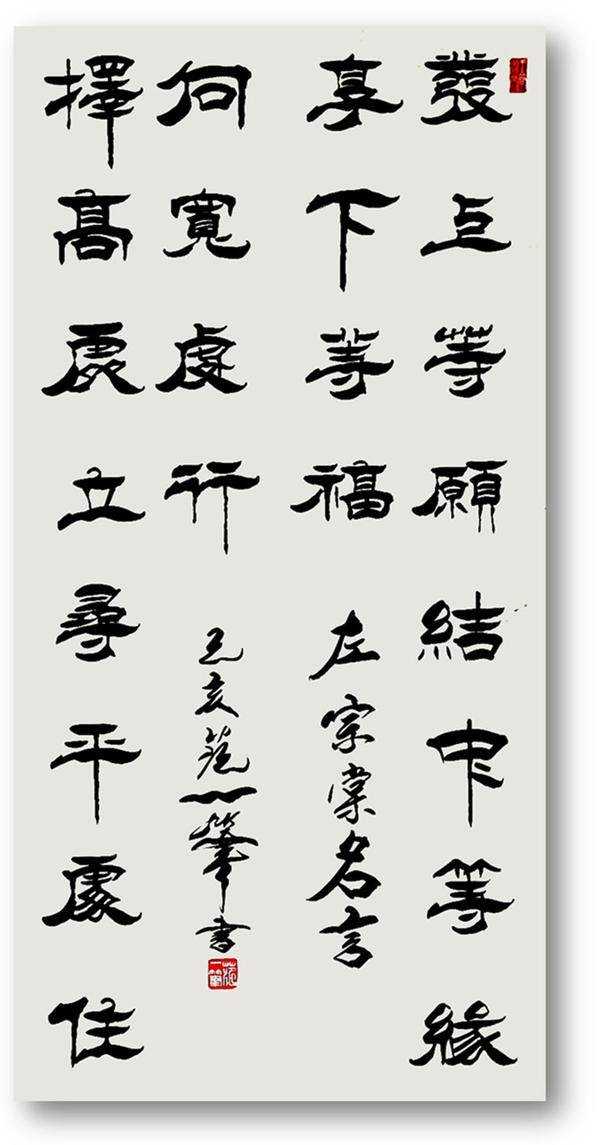 發上等願結中等緣
享下等福
左宗棠名言
擇高處立尋平處住
向寬處行
己亥范一筆書